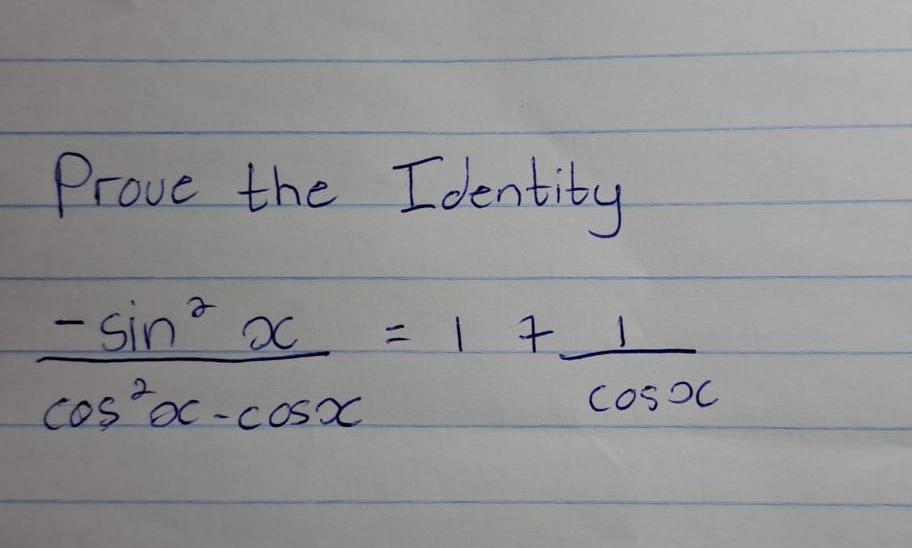 Prove the Identity
-sin² x / cos²x - cosx = 1 + 1 / cosx